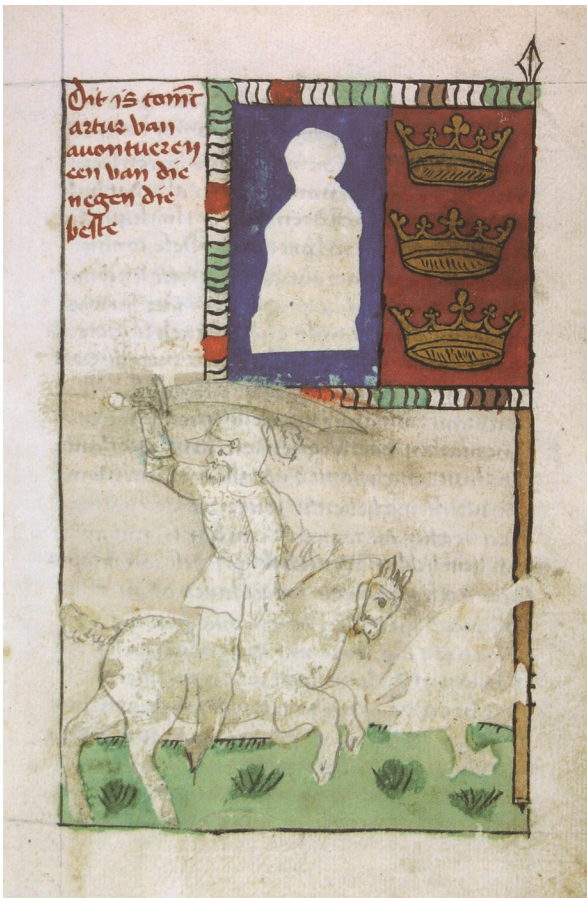 Dit is comc̄
artur van
auontueren
een van die
negen die
beste